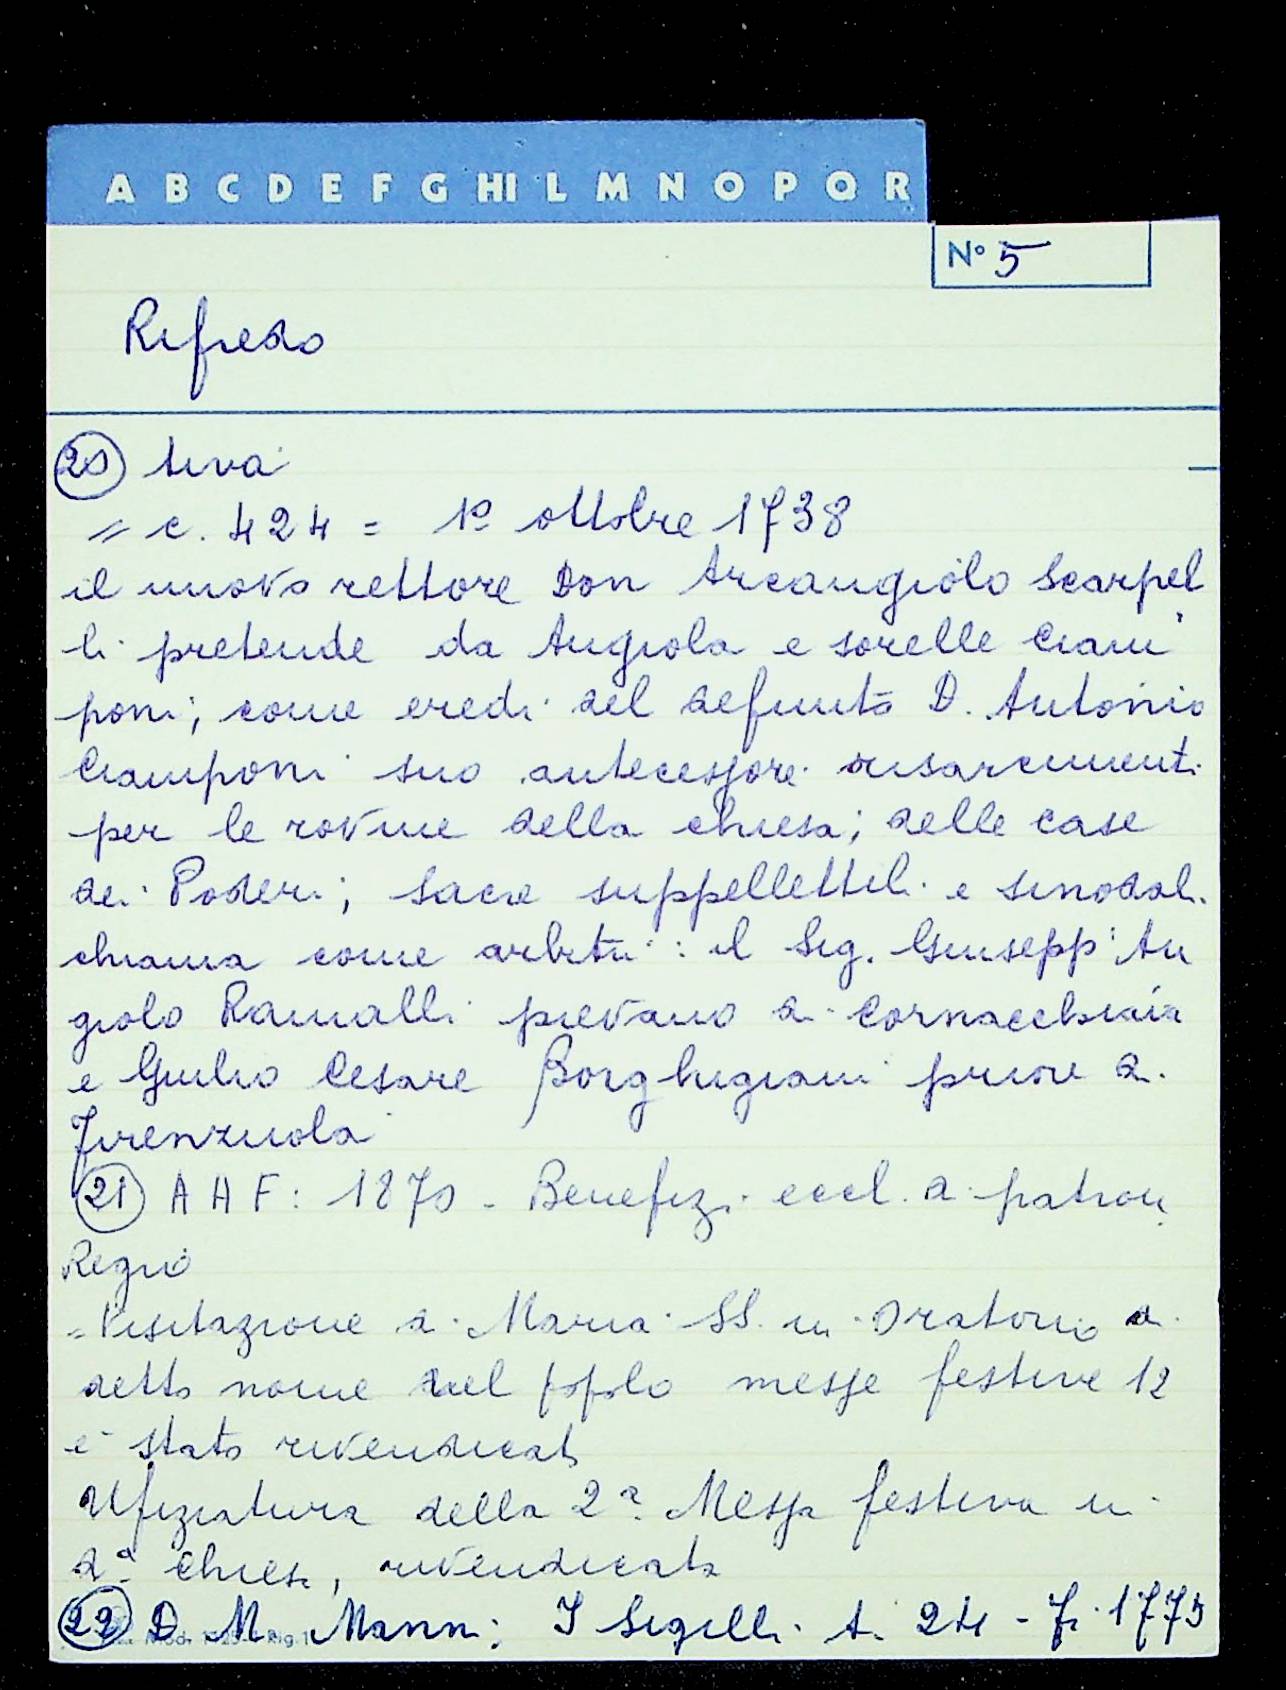 A B C D E F G HI L M N O P Q R
N° 5
Rifredo
20 tiva
= c. 424 = 1° ottobre 1738
il nuovo rettore Don Arcangiolo Scarpel
li pretende da Angiola e sorelle Ciam
poni; come eredi del defunto D. Antonio
Ciamponi suo antecessore risarcimenti
per le rovine della chiesa; delle case
dei Poderi; sacre suppellettili e sinodali.
chiama come arbitri: il Sig. Giusepp' An
giolo Ramalli pievano di Cornacchiaia
e Giulio Cesare Borghigiani priore di
Firenzuola
21 A A F: 1870 - Benefizi eccl. di patron.
Regio
= Visitazione di Maria SS. in Oratorio di
detto nome nel popolo messe festive 12
e' stato rivendicato
Ufiziatura della 2ª Messa festiva in
dª chiesa, rivendicata
22 D. M. Manni: I Sigilli t. 24 - Fi 1775